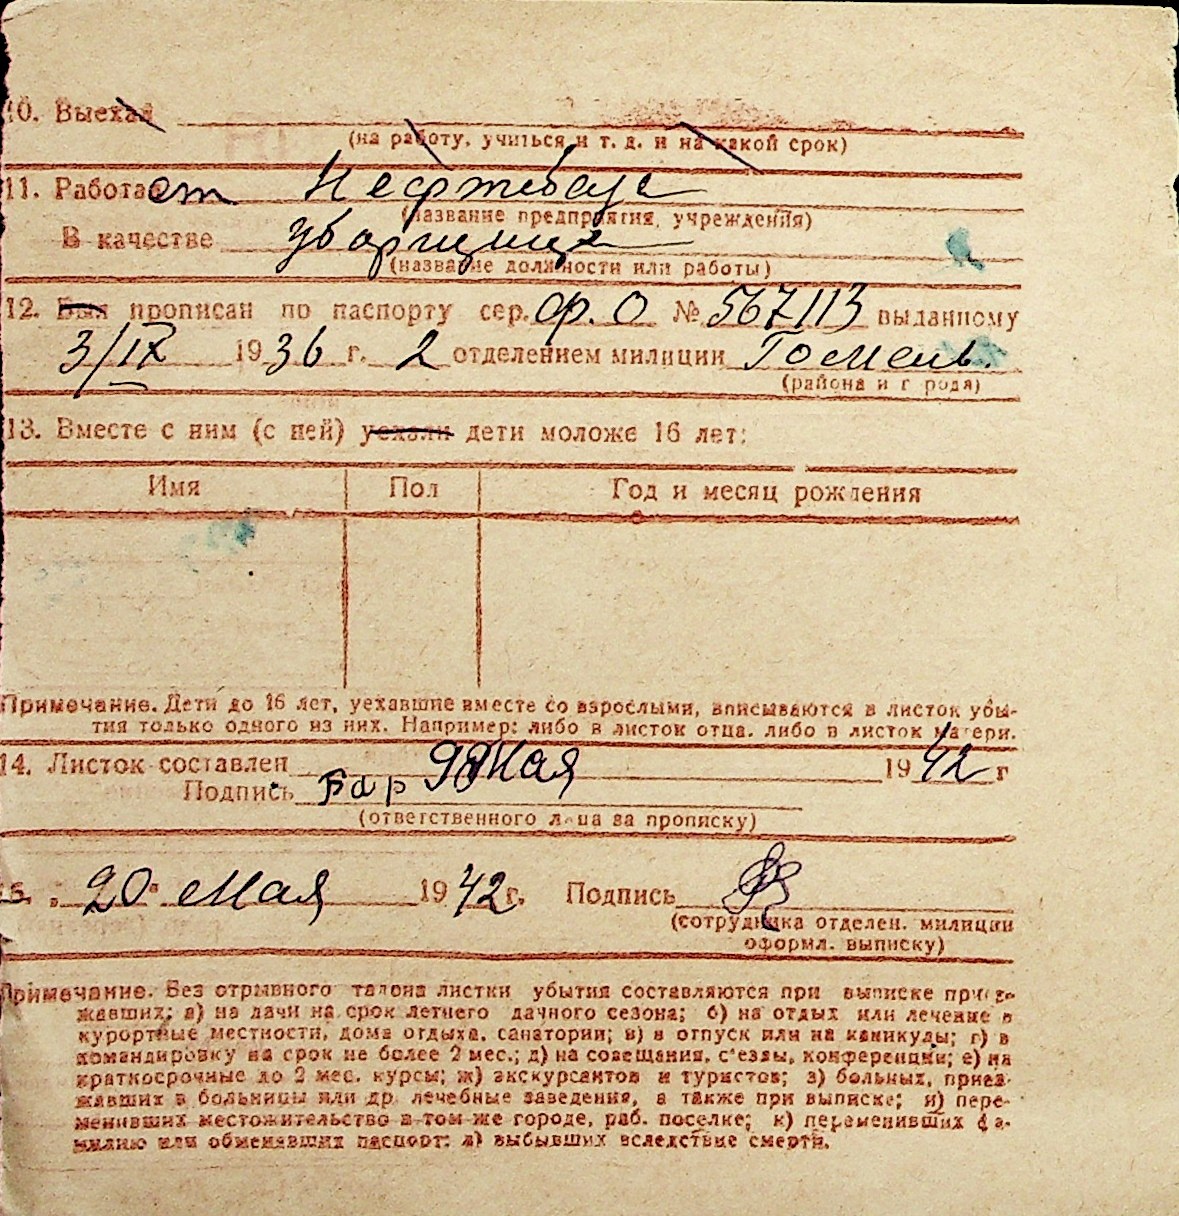 10. Выехал
(на работу, учиться и т. д. и на какой срок)
11. Работает Нефтебаза
(название предприятия, учреждения)
В качестве уборщица
(название должности или работы)
12. Был прописан по паспорту сер. ф. О № 567113 выданному
3/IX 1936 г. 2 отделением милиции Гомель.
(района и города)
13. Вместе с ним (с ней) уехали дети моложе 16 лет:
Имя Пол Год и месяц рождения
Примечание. Дети до 16 лет, уехавшие вместе со взрослыми, вписываются в листок убы-
тия только одного из них. Например: либо в листок отца, либо в листок матери.
14. Листок составлен мая 1942 г
Подпись Бар
(ответственного лица за прописку)
15. „20“ мая 1942 г. Подпись
(сотрудника отделен. милиции
оформл. выписку)
Примечание. Без отрывного талона листки убытия составляются при выписке приез-
жавших; а) на дачи на срок летнего дачного сезона; б) на отдых или лечение в
курортные местности, дома отдыха, санатории; в) в отпуск или на каникулы; г) в
командировку на срок не более 2 мес.; д) на совещания, с'езды, конференции; е) на
краткосрочные до 2 мес. курсы; ж) экскурсантов и туристов; з) больных, приез-
жавших в больницы или др. лечебные заведения, а также при выписке; и) пере-
менивших местожительство в том же городе, раб. поселке; к) переменивших фа-
милию или обменявших паспорт; л) выбывших вследствие смерти.